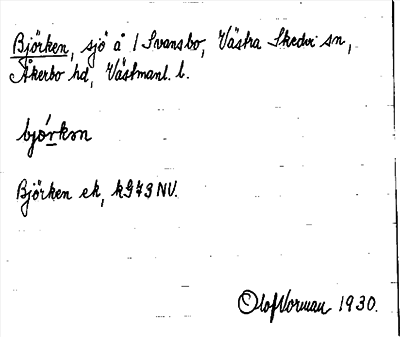 Björken, sjö å 1 Svansbo, Västra Skedvi sn,
Åkerbo hd, Västmanl. l.
bjǿrkən
Björken ek, k973 NV.
Olof Norman 1930.